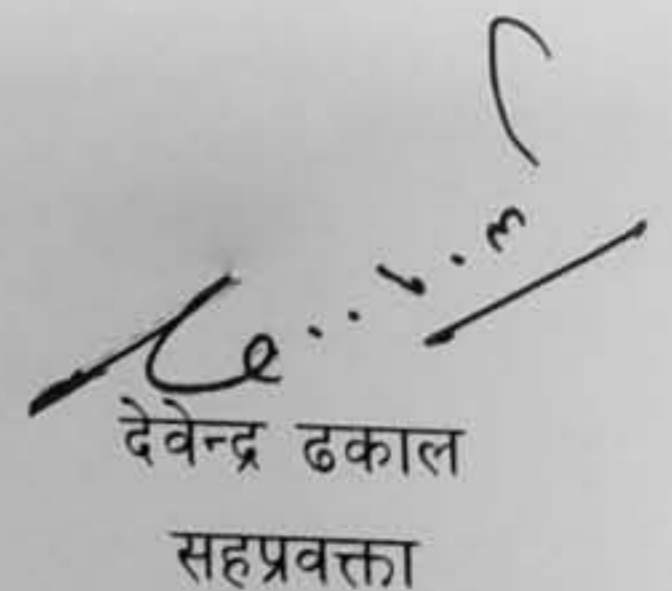 देवेन्द्र ढकाल
सहप्रवक्ता